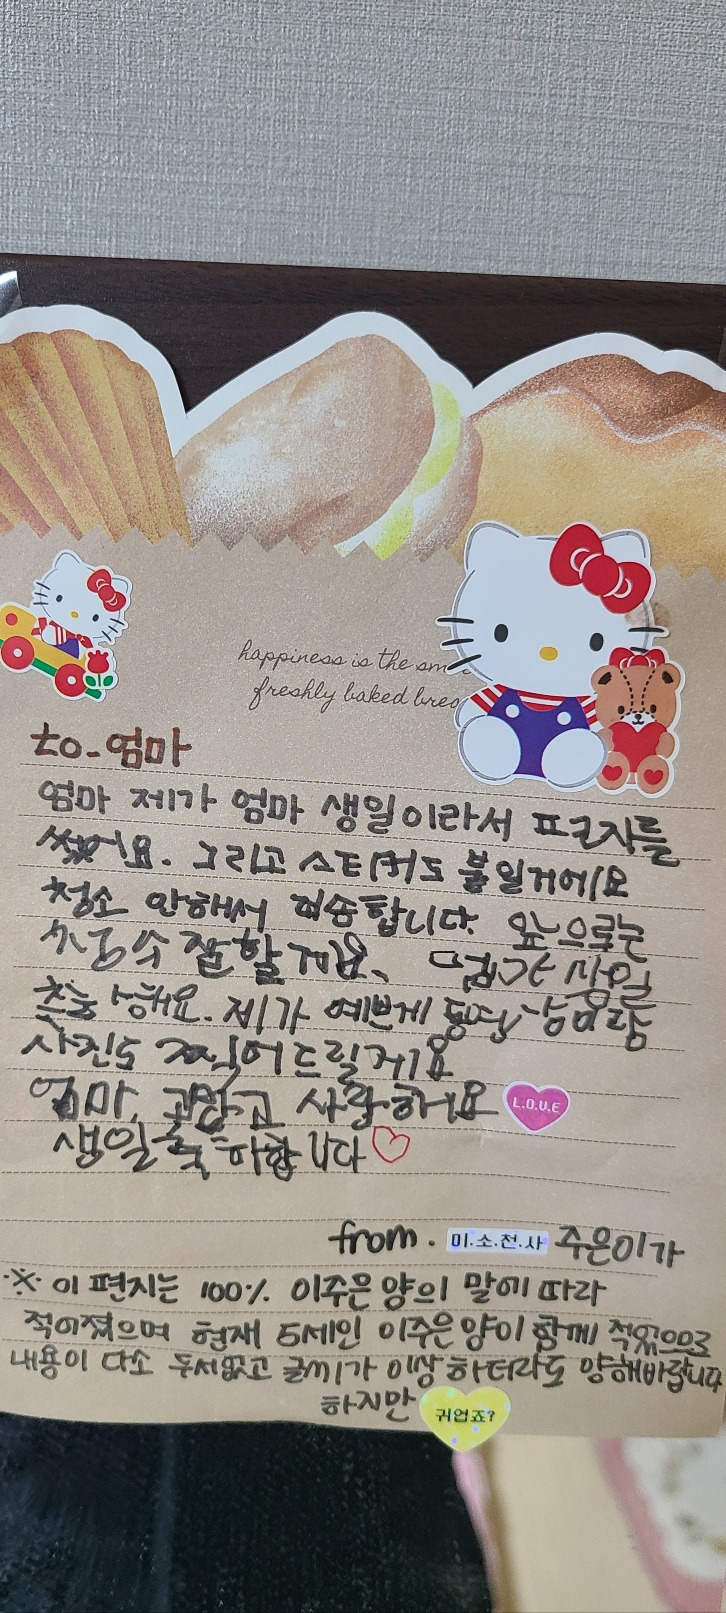 happiness is the sm
freshly baked brea
to. 엄마
엄마 제가 엄마 생일이라서 프크지를
썼어요. 그리고 스티커도 붙일거에요
청소 안해서 죄송합니다. 앞으로는
청소 잘할게요.
해요. 제가 예쁜게
사진도 찍어드릴게요
엄마, 고맙고 사랑해요 L.O.V.E
생일축하합니다♡
from. 미.소.천.사 주은이가
※ 이 편지는 100% 이주은 양의 말에 따라
적어졌으며 현재 5세인 이주은양이 함께 적었으므로
내용이 다소 두서없고 글씨가 이상하더라도 양해바랍니다
하지만 귀업죠?